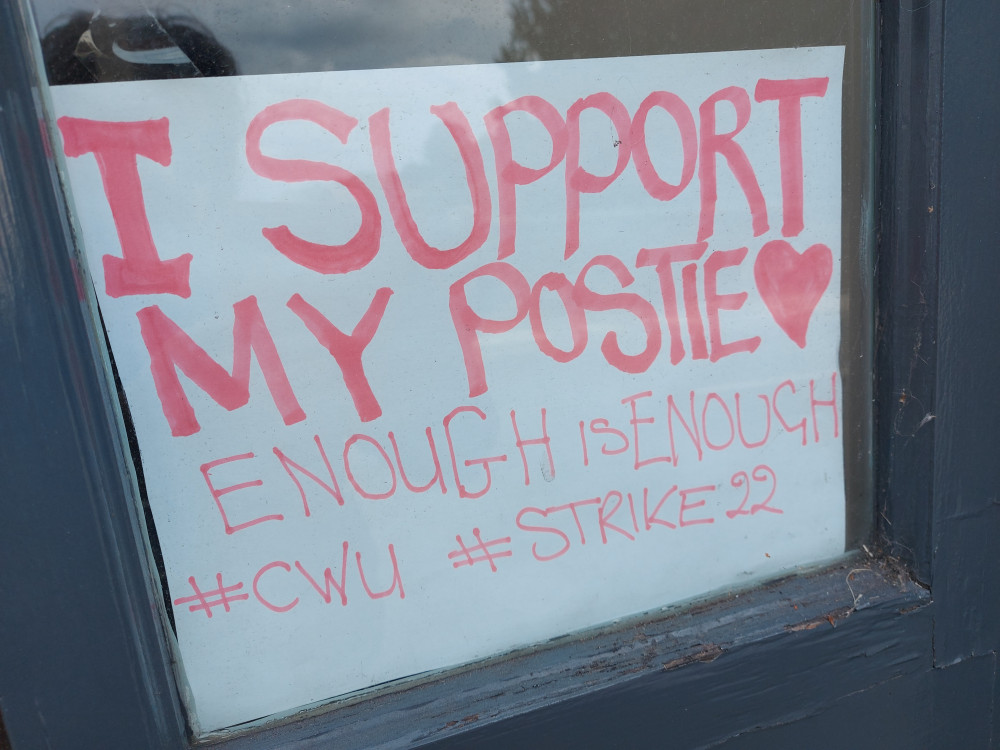 I SUPPORT
MY POSTIE
ENOUGH IS ENOUGH
#CWU #STRIKE22